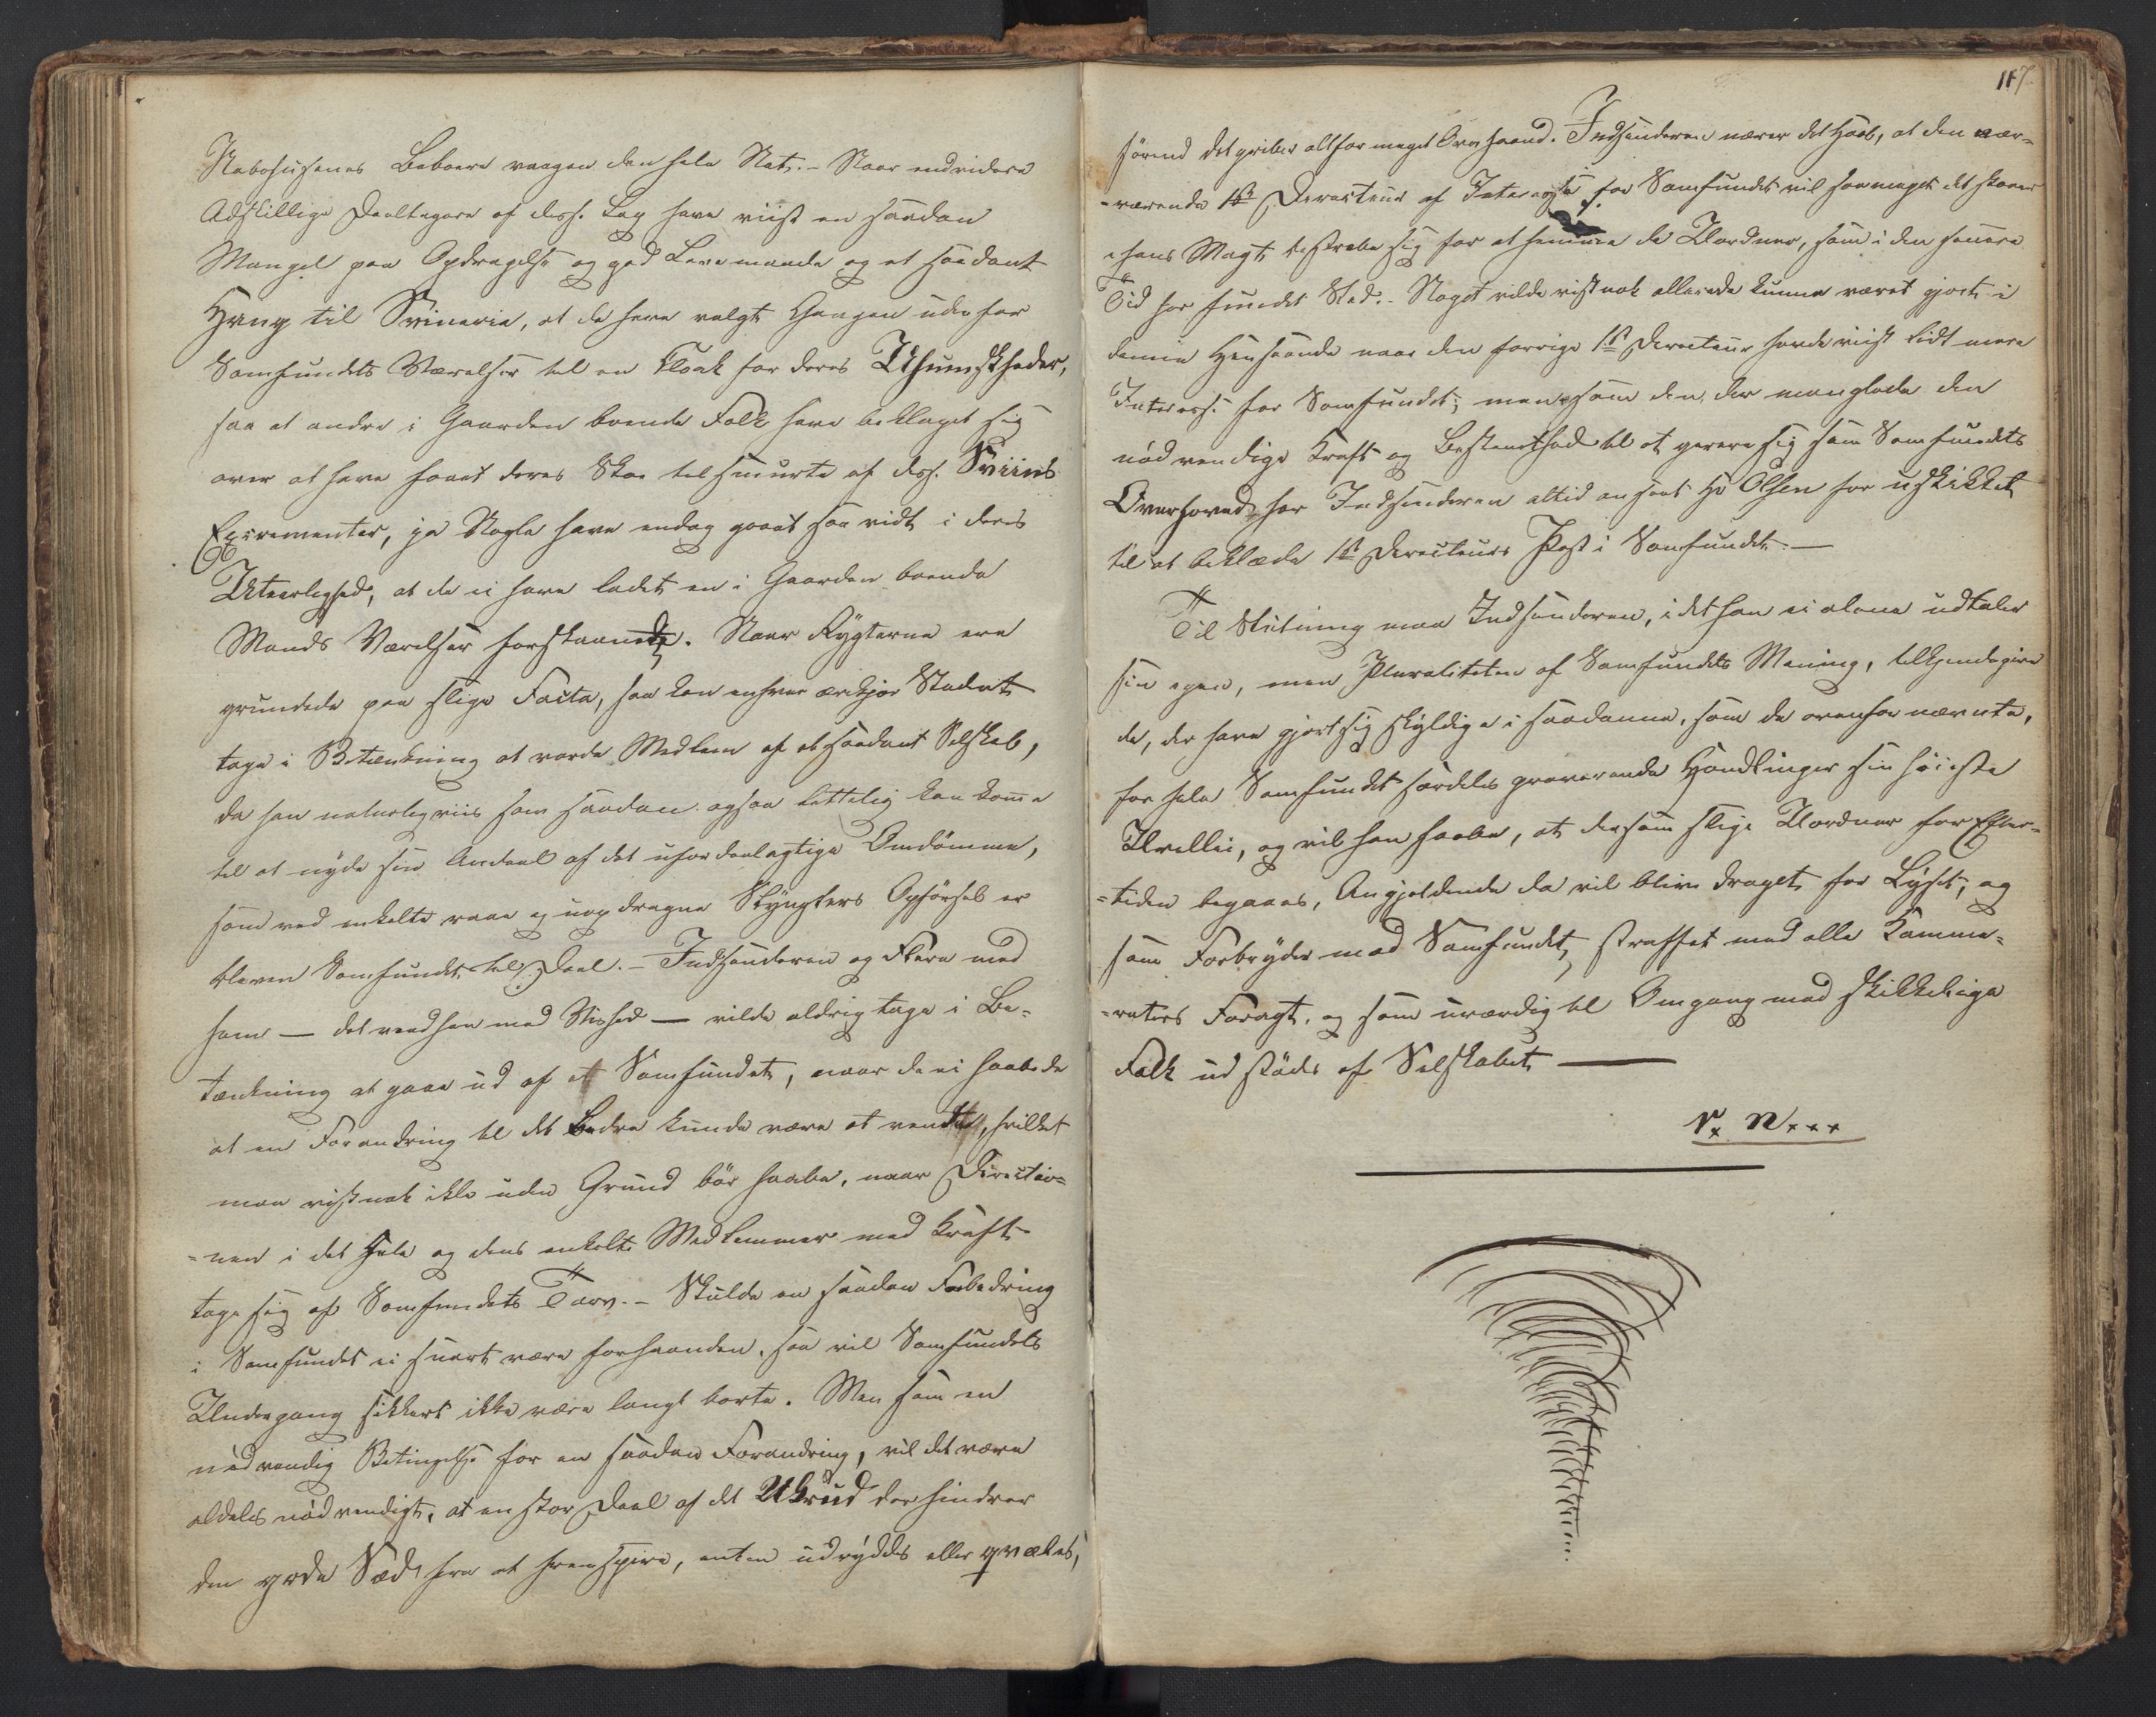 Nabohusenes Beboere vaagen den hele Nat. - Naar endvidere
Adskillige Deeltagere af dess. Lag have viist en saadan
Mangel paa Opdragelse og god Levemaade og et saadant
Hang til Svinerie, at de have valgt Gangen udenfor
Samfundets Værelser til en Kloak for deres Uhumskheder,
saa at andre i Gaarden boende Folk have beklaget sig
over at have faaet deres Skoe tilsmurte af diss. Sviins
Excrementer, ja Nogle have endog gaaet saa vidt i deres
Uteerlighed, at de ei have ladet en i Gaarden boende
Mands Værelser forskaanede. Naar Rygterne ere
grundede paa slige Facta, saa kan enhver ærekjær Student
tage i Betænkning at vorde Medlem af et saadant Selskab,
da han naturligviis som saadan ogsaa lettelig kan komme
til at nyde sin Andeel af det ufordeelagtige Omdömme,
som ved enkelte raae og uopdragne Slyngters Opförsel er
bleven Samfundet til Deel. - Indsenderen og Flere med
ham — det veed han med Vished — vilde aldrig tage i Be=
tænkning at gaae ud af Samfundet, naar de ei haabede
at en Forandring til det Bedre kunde være at vente, hvilket
man vistnok ikke uden Grund bör haabe, naar Directio=
=nen i det Hele og dens enkelte Medlemmer med Kraft
tage sig af Samfundets Tarv. - Skulde en saadan Forbedring
i Samfundet ei snart være forhaanden, saa vil Samfundets
Undergang sikkert ikke være langt borte. Men som en
nödvendig Betingelse for en saadan Forandring, vil det være
aldeles nödvendigt, at en stor Deel af det Ukrud der hindrer
den gode Sæd fra at fremspire, enten udryddes eller qvæles,
117.
förend det griber altfor meget Overhaand. Indsenderen nærer det Haab, at den nær=
=værende 1ste Directeur af Interesse for Samfundet vil saa meget det staaer
i hans Magt bestræbe sig for at hemme de Uordner, som i den senere
Tid har fundet Sted. - Noget vilde vistnok allerede kunne været gjort i
denne Henseende naar den forrige 1ste Directeur havde viist lidt mere
Interesse for Samfundet; men som den, der manglede den
nödvendige Kraft og Bestemthed til at gerere sig som Samfundets
Overhoved, har Indsenderen altid anseet Hr Olsen for uskikket
til at beklæde 1ste Directeurs Post i Samfundet. —
Til Slutning maa Indsenderen, idet han ei alene udtaler
sin egen, men Pluraliteten af Samfundets Mening, tilkjendegive
de, der have gjort sig skyldige i saadanne, som de ovenfor nævnte,
for hele Samfundet særdeles graverende Handlinger sin höieste
Uvillie, og vil han haabe, at dersom slige Uordner for Efter=
=tiden begaaes, Angjeldende da vil blive draget for Lyset, og
som Forbryder mod Samfundet, straffet med alle Kamme=
=raters Foragt, og som uværdig til Omgang med skikkelige
Folk udstödt af Selskabet —
r. n...